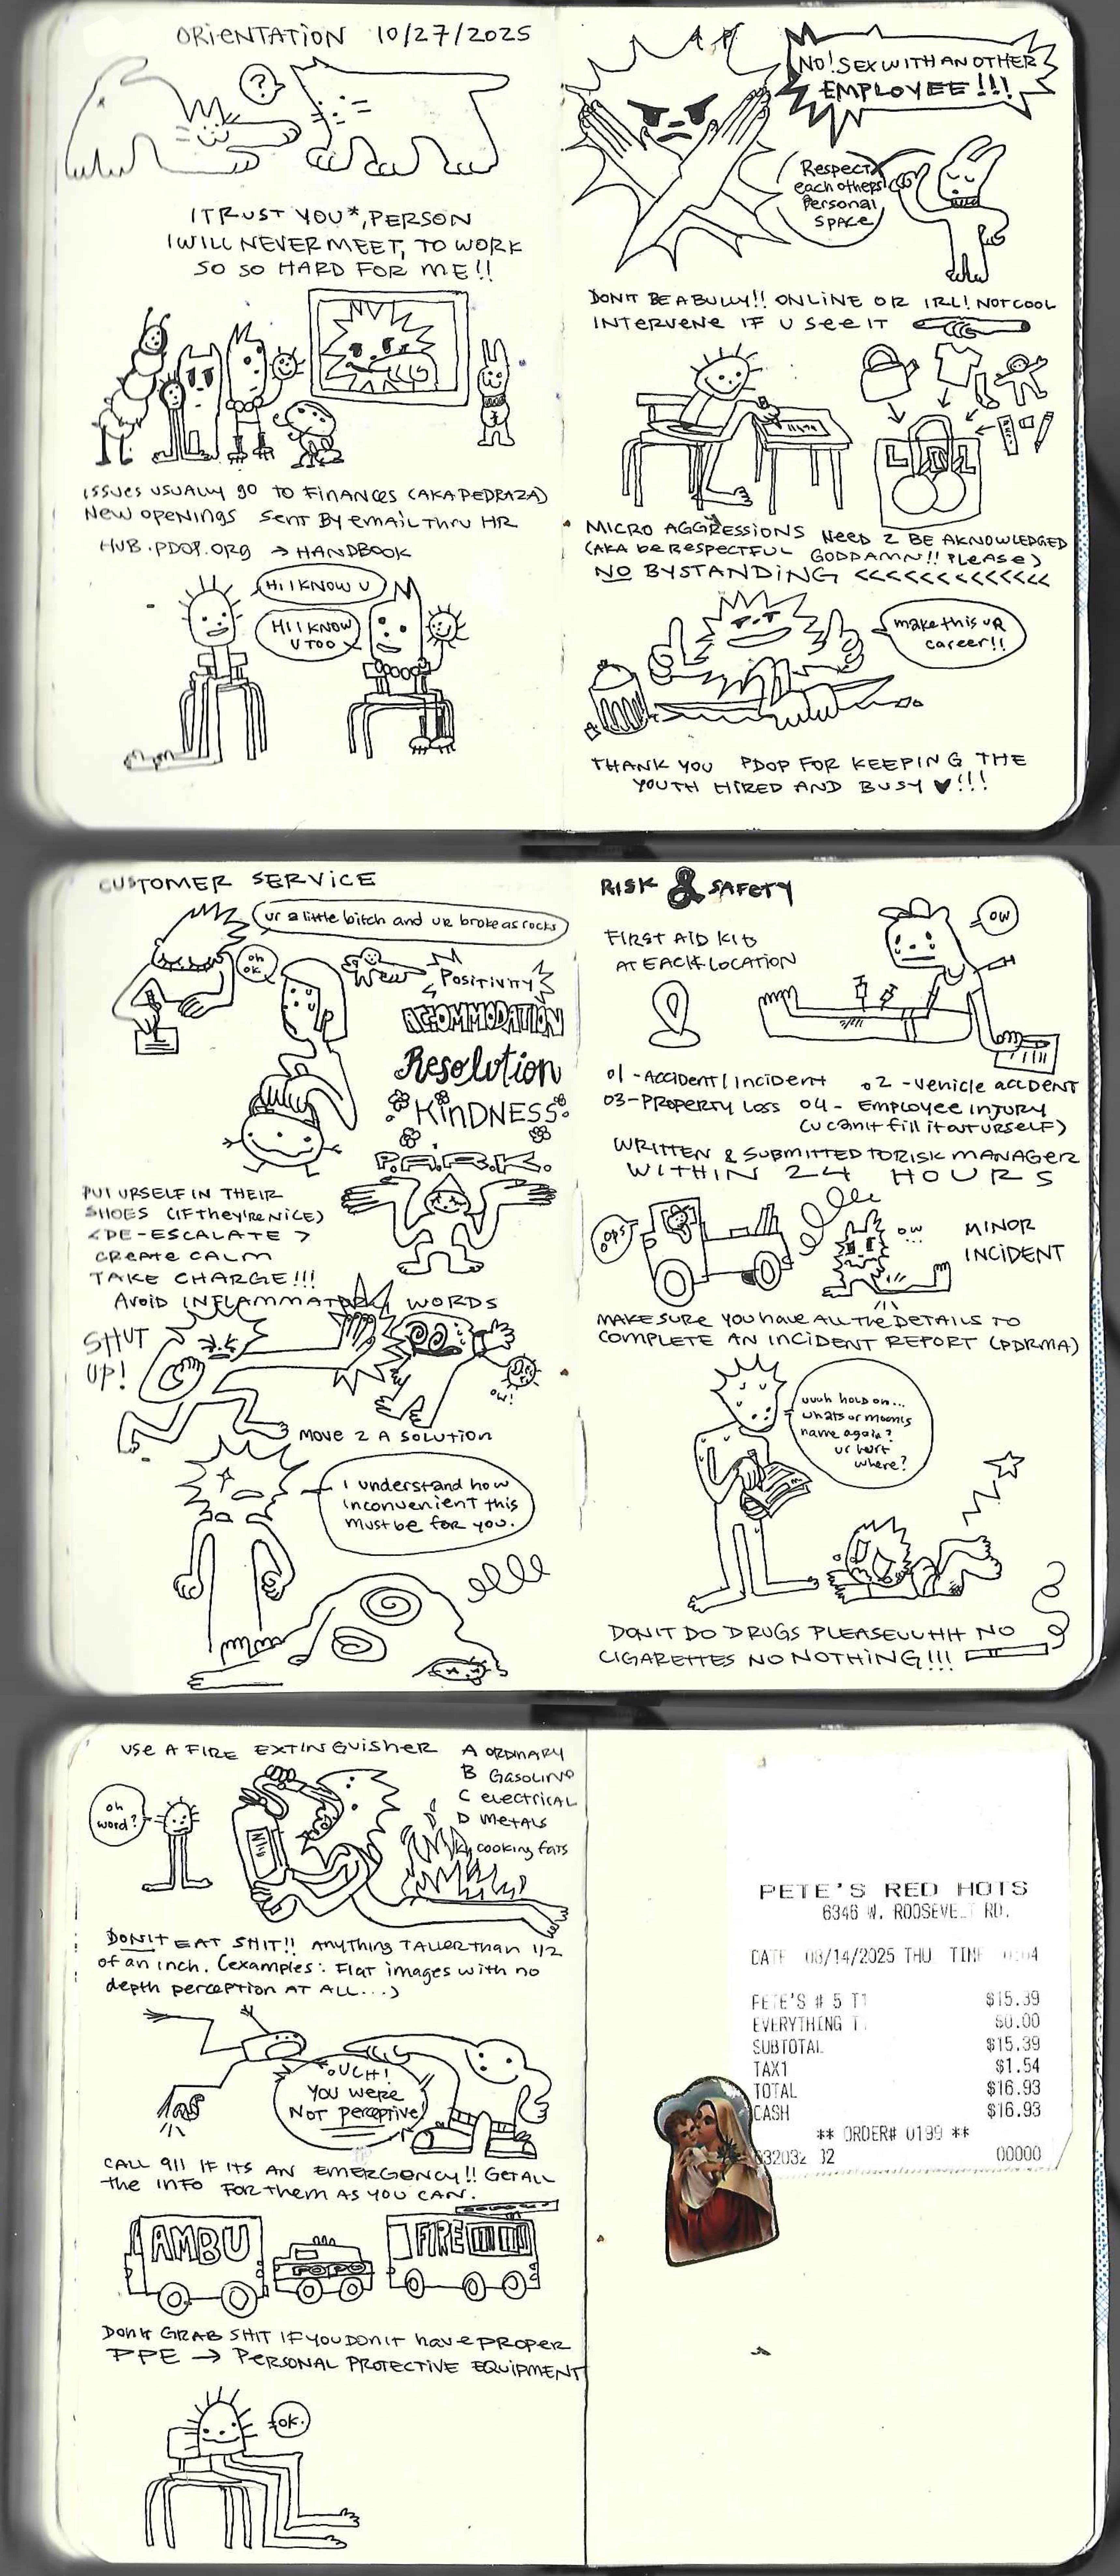 ORIENTATION 10/27/2025
?
I TRUST YOU*, PERSON
I WILL NEVER MEET, TO WORK
SO SO HARD FOR ME!!
ISSUES USUALLY GO TO FINANCES (AKA PEDRAZA)
NEW OPENINGS SENT BY EMAIL THRU HR
HUB.PDOP.ORG → HANDBOOK
HI I KNOW U
HI I KNOW
U TOO
NO! SEX WITH ANOTHER
EMPLOYEE!!!
Respect
each others
Personal
SPACE
DON'T BE A BULLY!! ONLINE OR IRL! NOT COOL
INTERVENE IF U SEE IT
MICRO AGGRESSIONS NEED 2 BE AKNOWLEDGED
(AKA be RESPECTFUL GODDAMN!! PLEASE)
NO BYSTANDING <<<<<<<<<<<<<
make this UR
career!!
THANK YOU PDOP FOR KEEPING THE
YOUTH HIRED AND BUSY ♥!!!
CUSTOMER SERVICE
ur a little bitch and ur broke as rocks
oh
ok.
POSITIVITY
ACCOMMODATION
Resolution
KINDNESS
P.A.R.K.
PUT URSELF IN THEIR
SHOES (IF they're NICE)
<DE-ESCALATE>
CREATE CALM
TAKE CHARGE!!!
AVOID INFLAMMATORY WORDS
SHUT
UP!
OW!
MOVE 2 A SOLUTION
I understand how
inconvenient this
must be for you.
RISK & SAFETY
FIRST AID KITS
AT EACH LOCATION
OW
01 - ACCIDENT/INCIDENT 02 - VEHICLE ACCIDENT
03 - PROPERTY LOSS 04 - EMPLOYEE INJURY
(U can't fill it out URSELF)
WRITTEN & SUBMITTED TO RISK MANAGER
WITHIN 24 HOURS
oops
ow...
MINOR
INCIDENT
MAKE SURE YOU have ALL the DETAILS TO
COMPLETE AN INCIDENT REPORT (PDRMA)
uuuh hold on...
whats ur moms
name again?
ur hurt
where?
DON'T DO DRUGS PLEASEUUHH NO
CIGARETTES NO NOTHING!!!
USE A FIRE EXTINGUISHER
A ORDINARY
B Gasoline
C electrical
D METALS
K cooking fats
oh
word?
DON'T EAT SHIT!! ANYTHING TALLER THAN 1/2
of an inch. (examples: Flat images with no
depth perception AT ALL...)
OUCH!
YOU WERE
NOT perceptive!
CALL 911 IF ITS AN EMERGENCY!! Get ALL
the INFO FOR them AS YOU CAN.
AMBU
POPO
FIRE
DON'T GRAB SHIT IF YOU DON'T have PROPER
PPE → PERSONAL PROTECTIVE EQUIPMENT
ok.
PETE'S RED HOTS
6346 W. ROOSEVELT RD.
DATE 08/14/2025 THU TIME
PETE'S # 5 T1 $15.39
EVERYTHING $0.00
SUBTOTAL $15.39
TAX1 $1.54
TOTAL $16.93
CASH $16.93
** ORDER# 0199 **
00000